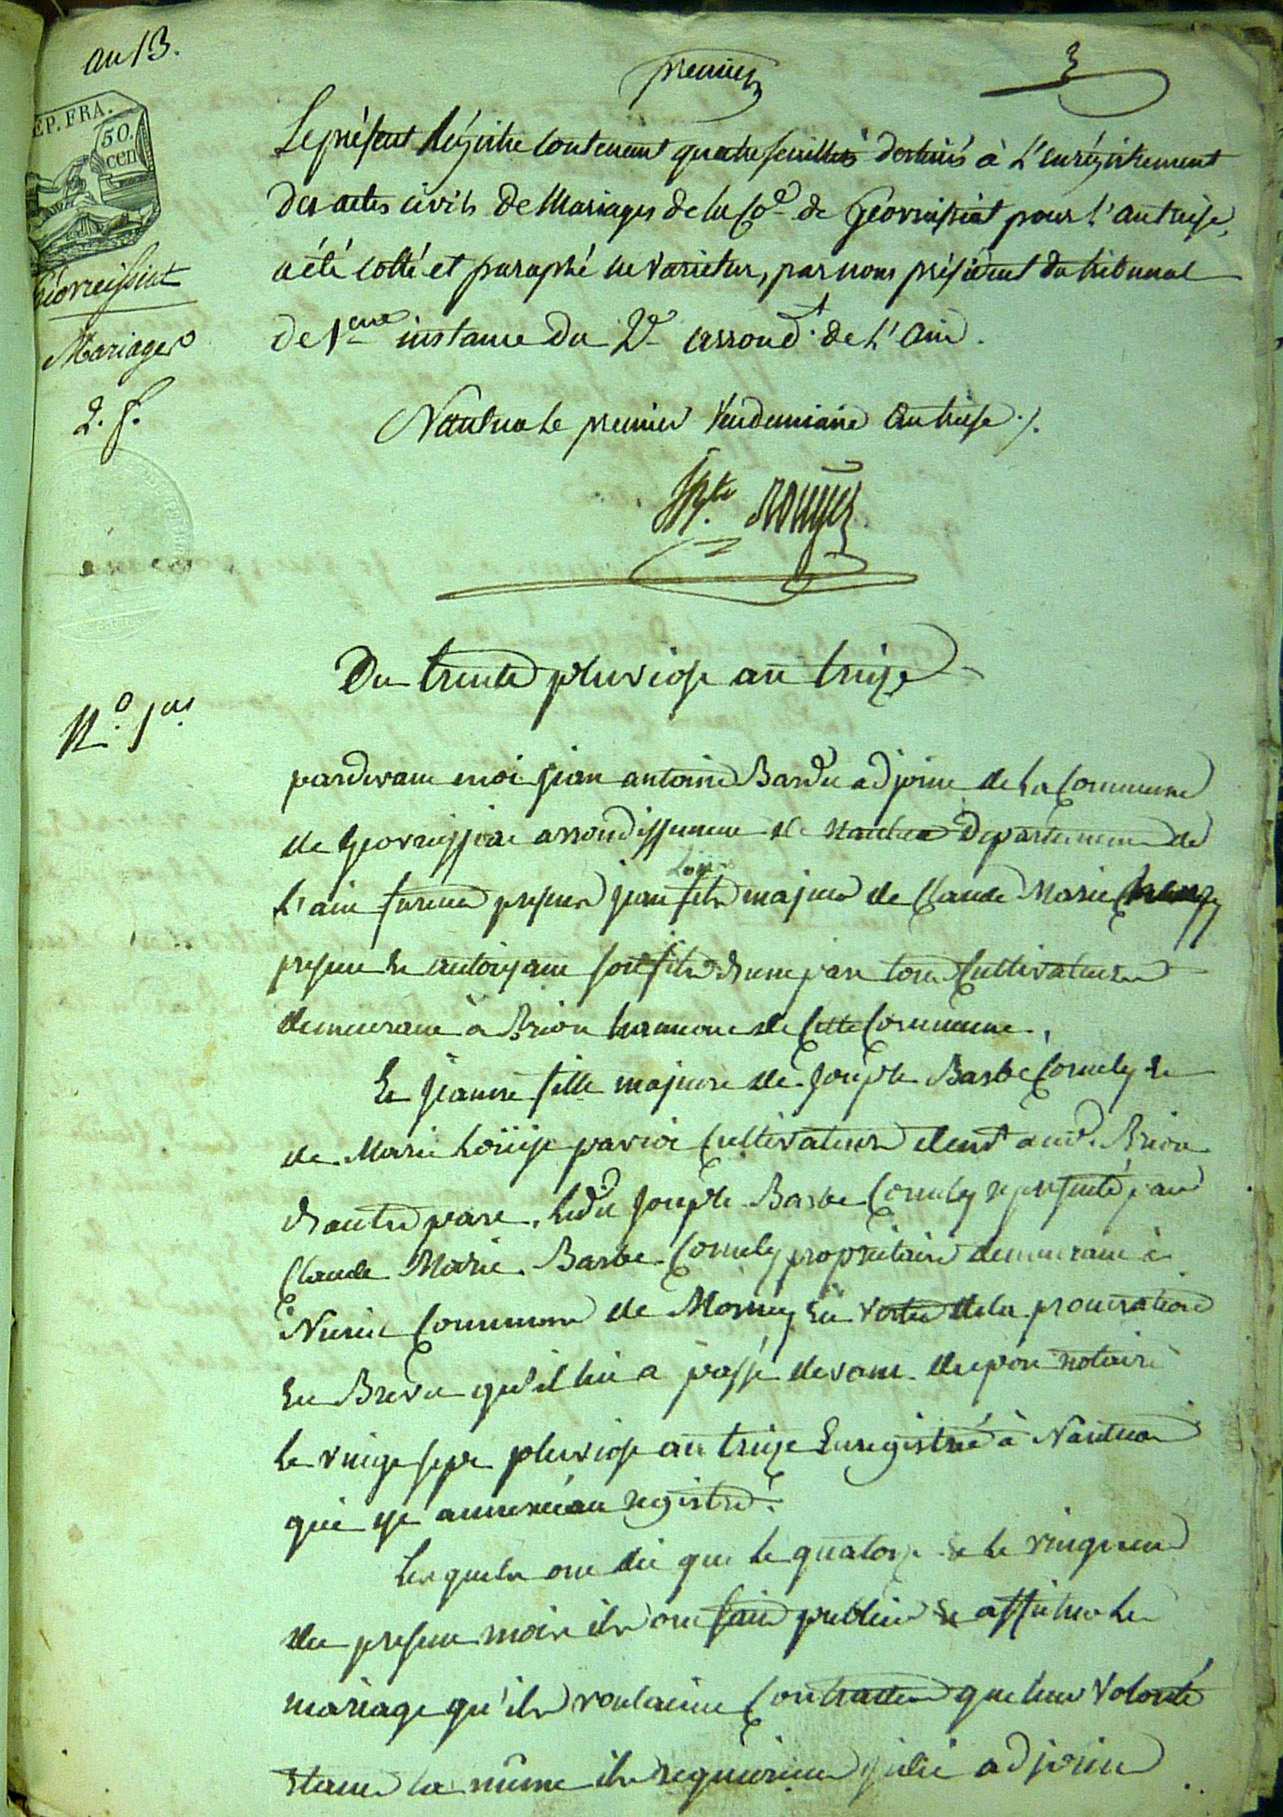 an 13.
premier
3
REP. FRA.
50.
cen
Le présent Régistre contenant quatre feuillets destinés à l'enrégistrement
des actes civils de Mariages de la Co.e de Géovreissiat pour l'an treise,
a été cotté et paraphé ne varietur, par nous président du tribunal
de 1ere instance du 2e arrond.t de l'Ain.
Géovreissiat
Mariages
2. f.
Nantua le premier Vendemiaire an treise ./.
Du trente pluviose an treize
N.o 1er
pardevant moi jean antoine Barbe adjoint de la Commune
de Geovreissiat arrondissement de nantua Département de
L'ain furent presens jean fils majeur de Claude Marie
present et autorisant son fils d'une part tous Cultivateurs
demeurant à Brion hameau de Cette Commune.
Et jeanne fille majeure de joseph Barbe Cornely et
de Marie Loüise Cultivateurs demt audt Brion
d'autre part. ledit joseph Barbe Cornely representé par
Claude Marie Barbe Cornely propriétaire demeurant à
Commune de Mornay En Vertu de la procuration
En Brevet qu'il lui a passé devant notaire
Le vingt sept pluviose an treize Enregistré à Nantua
qui est annexée au registre.
Lesquels ont dit que le quatorze et le vingt un
du present mois ils ont fait publier et afficher le
mariage qu'ils voulaient Contracter que leur Volonté
etant la même ils requierent adjoint